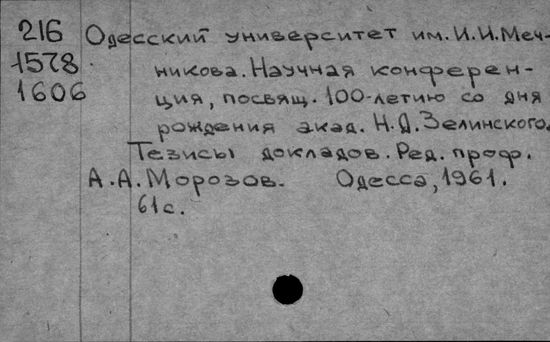 216 Одесский университет им. И.И.Меч-
1578 никова. Научная конферен-
1606 ция, посвящ. 100-летию со дня
рождения акад. Н.Д.Зелинского.
Тезисы докладов. Ред. проф.
А.А.Морозов. Одесса, 1961.
61с.